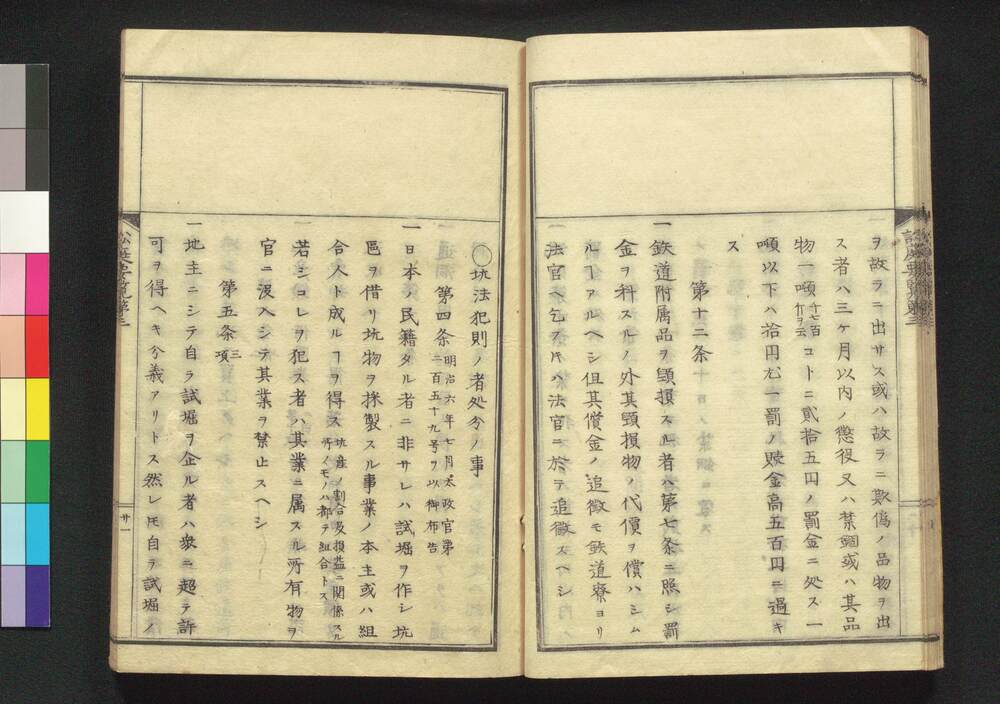 ヲ故ラニ出サス或ハ故ラニ欺偽ノ品物ヲ出
ス者ハ三ケ月以内ノ懲役又ハ禁錮或ハ其品
物一噸千七百斤ヲ云コトニ貳拾五円ノ罰金ニ処ス一
噸以下ハ拾円尤一罰ノ贖金高五百円ニ過キ
ス
第十二条
一鉄道附属品ヲ毀損スル者ハ第七条ニ照シ罰
金ヲ科スルノ外其毀損物ノ代價ヲ償ハシム
ル丁アルヘシ但其償金ノ追徴モ鉄道寮ヨリ
法官ヘ乞フ片ハ法官ニ於テ追徴スヘシ
〇坑法犯則ノ者処分ノ事
第四条明治六年七月太政官第二百五十九号ヲ以御布告
一日本ノ民籍タル者ニ非サレハ試堀ヲ作シ坑
區ヲ借リ坑物ヲ採製スル事業ノ本主或ハ組
合人ト成ルヿヲ得ス坑産ノ割合及損益ニ関係スル所ノモノハ都テ組合トス
若シコレヲ犯ス者ハ其業ニ属スル所有物ヲ
官ニ没入シテ其業ヲ禁止スヘシ
第五条三項
一地主ニシテ自ラ試堀ヲ企ル者ハ衆ニ超テ許
可ヲ得ヘキ分義アリトス然レ𪜈自ラ試堀ノ
訟庭要覧第三
廿一